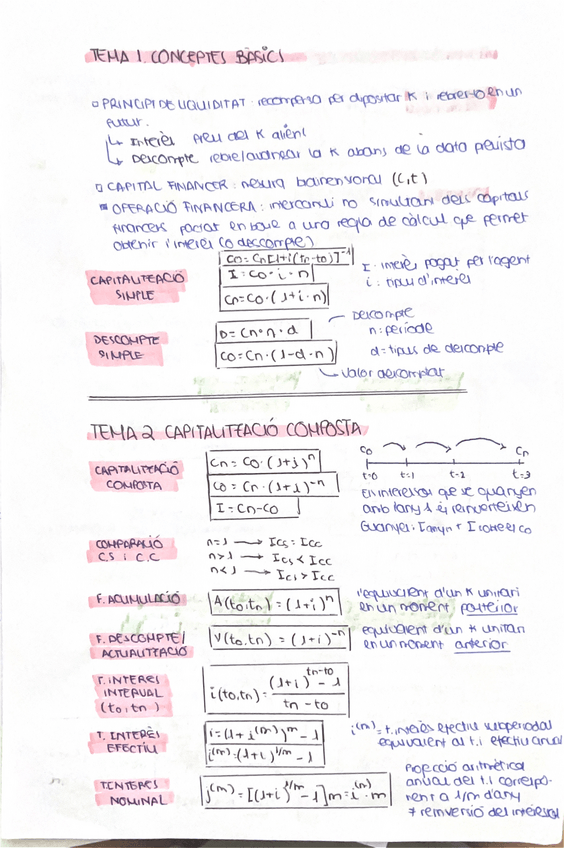 TEMA 1. CONCEPTES BÀSICS
▫ PRINCIPI DE LIQUIDITAT: recompensa per dipositar K i rebre-lo en un
futur.
↳ Interès preu del K alienì
↳ Descompte rebre/avançar la K abans de la data prevista
▫ CAPITAL FINANCER: mesura bidimensional (C,t)
▪ OPERACIÓ FINANCERA: intercanvi no simultani dels capitals
financers pactat en base a una regla de càlcul que permet
obtenir l'interès (o descompte)
CAPITALITZACIÓ
SIMPLE
C0 = Cn [1+i(tn-t0)]^-1
I = C0 · i · n
Cn = C0 · (1+i·n)
I: interès pagat per l'agent
i: tipus d'interès
DESCOMPTE
SIMPLE
D = Cn · n · d
C0 = Cn · (1-d·n)
Descompte
n: període
d = tipus de descompte
valor descomptat
TEMA 2 CAPITALITZACIÓ COMPOSTA
CAPITALITZACIÓ
COMPOSTA
Cn = C0 · (1+i)^n
C0 = Cn · (1+i)^-n
I = Cn - C0
C0 Cn
t=0 t=1 t=2 t=3
Els interessos que se guanyen
amb l'any 1 es reinverteixen
COMPARACIÓ
C.S i C.C
n=1 → Ics = Icc
n>1 → Ics < Icc
n<1 → Ics > Icc
F. ACUMULACIÓ
A(t0,tn) = (1+i)^n
l'equivalent d'un K unitari
en un moment posterior
F. DESCOMPTE/
ACTUALITZACIÓ
V(t0,tn) = (1+i)^-n
equivalent d'un K unitari
en un moment anterior
T. INTERÈS
INTERVAL
(t0,tn)
i(t0,tn) = ((1+i)^(tn-t0) - 1) / (tn-t0)
T. INTERÈS
EFECTIU
i = (1+i^(m))^m - 1
i^(m) = (1+i)^1/m - 1
i^(m) = t. interès efectiu subperiodal
equivalent al t.i efectiu anual
T.INTERÈS
NOMINAL
j^(m) = [(1+i)^1/m - 1]m = i^(m) · m
Projecció aritmètica
anual del t.i correspo-
nent a 1/m d'any
≠ reinversió del interessos